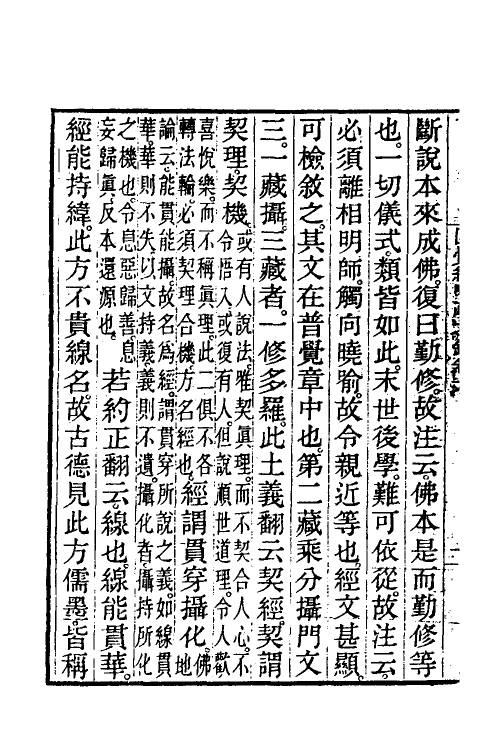 斷說本來成佛。復曰勤修。故注云。佛本是而勤修等
也。一切儀式。類皆如此。末世後學。難可依從。故注云。
必須離相明師。觸向曉喻。故令親近等也。經文甚顯。
可檢敘之。其文在普覺章中也。第二藏乘分攝門文
三。一藏攝。三藏者。一修多羅。此土義翻云契經。契謂
契理。契機。
或有人說法。唯契眞理。而不契合人心。不
令悟入。或復有人。但說順世道理。令人歡
喜悅樂。而不稱眞理。此二俱不各
轉法輪。必須契理合機。方名經也。
經謂貫穿攝化。
佛
地
論云。能貫能攝。故名爲經。謂貫穿所說之義。如線貫
華。華則不失。以文持義。義則不遺。攝化者。攝持所化
之機也。令息惡歸善。息
妄歸眞。反本還源也。
若約正翻云。線也。線能貫華。
經能持緯。此方不貴線名。故古德見此方儒墨。皆稱